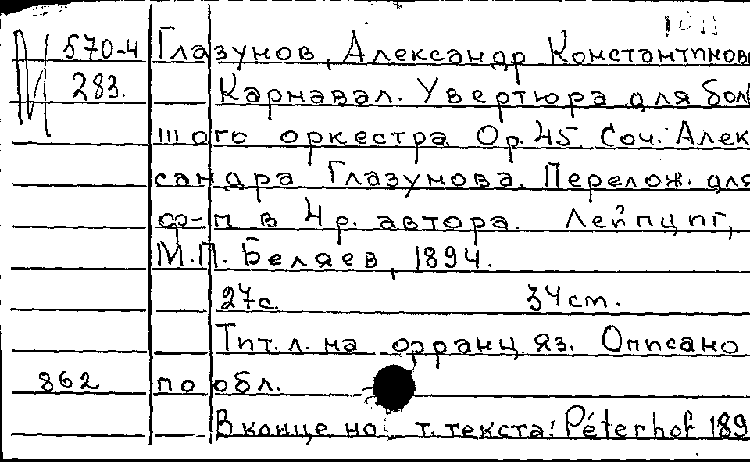 И 570-4 Глазунов, Александр Константинов
283. Карнавал. Увертюра для бол
шого оркестра Op. 45. Соч. Алек
сандра Глазунова. Перелож. для
ф-п в 4 р. автора. Лейпциг,
М.П. Беляев, 1894.
27 с. 34 см.
Тит. л. на франц яз. Описано
862 по обл.
В конце но т. текста: Péterhof 189